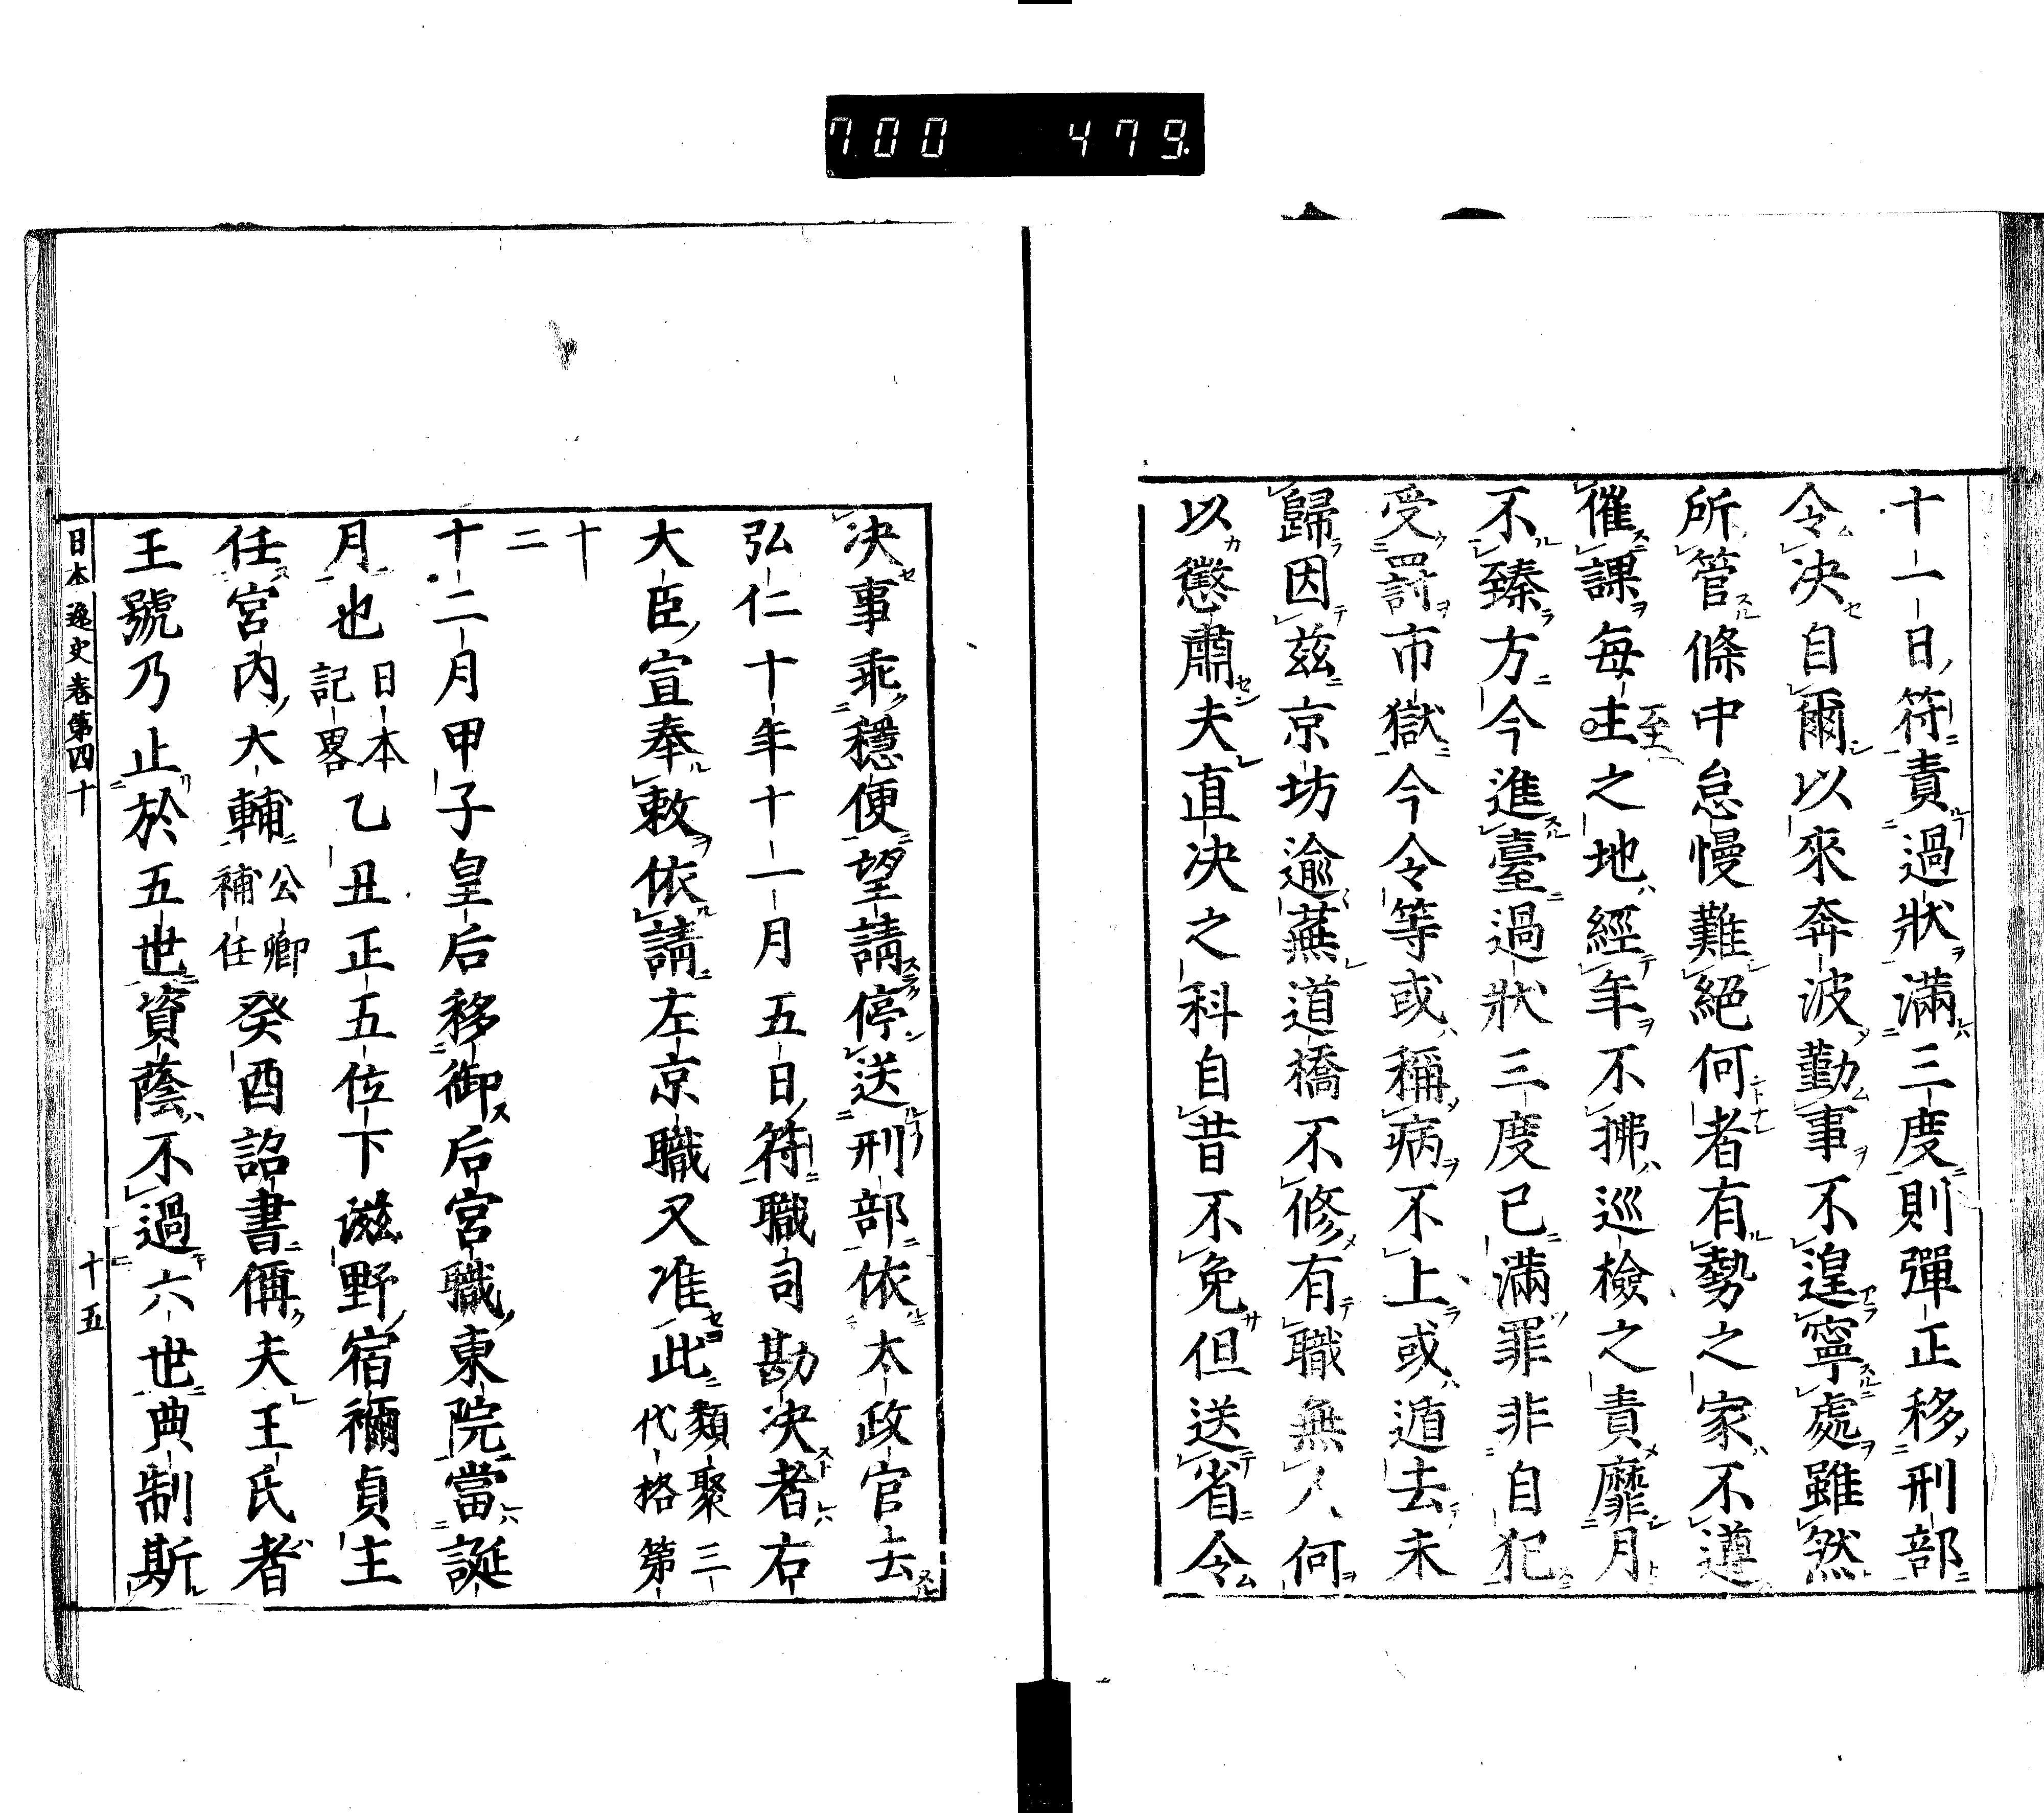 700 479
十一日符責過狀滿三度則彈正移刑部
令决自爾以來奔波勤事不遑寧處雖然
所管條中怠慢難絕何者有勢之家不遵
催課每主之地經年不拂巡檢之責靡月
至
不臻方今進臺過狀三度已滿罪非自犯
受罸市獄今令等或稱病不上或遁去未
歸因兹京坊逾蕪道橋不修有職無人何
以懲肅夫直决之科自昔不免但送省令
决事乖穩便望請停送刑部依太政官去
弘仁十年十一月五日符職司勘决者右
大臣宣奉敕依請左京職又准此類聚三
代格第
十
二
十二月甲子皇后移御后宮職東院當誕
月也日本
記畧乙丑正五位下滋野宿禰貞主
任宮內大輔公卿
補任癸酉詔書偁夫王氏者
王號乃止於五世資蔭不過六世典制斯
日本逸史卷第四十 十五